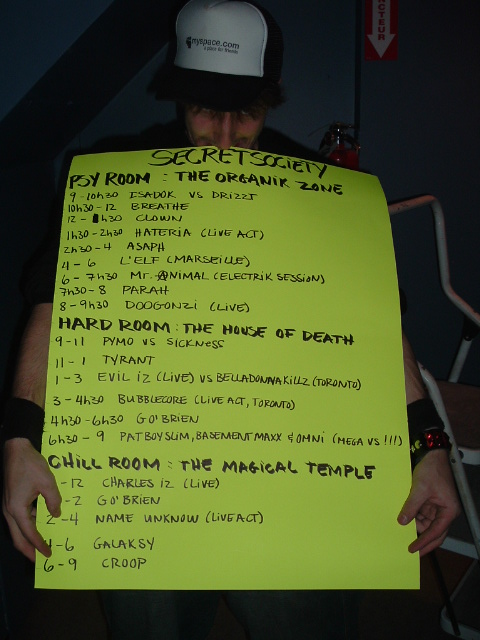 myspace.com
a place for friends
CTEUR
SECRETSOCIETY
PSY ROOM : THE ORGANIK ZONE
9-10h30 ISADOK VS DRIZZT
10h30-12 BREATHE
12-1h30 CLOWN
1h30-2h30 HATERIA (LIVE ACT)
2h30-4 ASAPH
4-6 L'ELF (MARSEILLE)
6-7h30 Mr. ANIMAL (ELECTRIK SESSION)
7h30-8 PARAH
8-9h30 DOOGONZI (LIVE)
HARD ROOM : THE HOUSE OF DEATH
9-11 PYMO VS SICKNESS
11-1 TYRANT
1-3 EVIL IZ (LIVE) VS BELLADONNAKILLZ (TORONTO)
3-4h30 BUBBLECORE (LIVE ACT, TORONTO)
4h30-6h30 GO'BRIEN
6h30-9 PATBOYSLIM, BASEMENTMAXX & OMNI (MEGA VS !!!)
CHILL ROOM : THE MAGICAL TEMPLE
-12 CHARLES IZ (LIVE)
-2 GO'BRIEN
2-4 NAME UNKNOW (LIVE ACT)
4-6 GALAKSY
6-9 CROOP